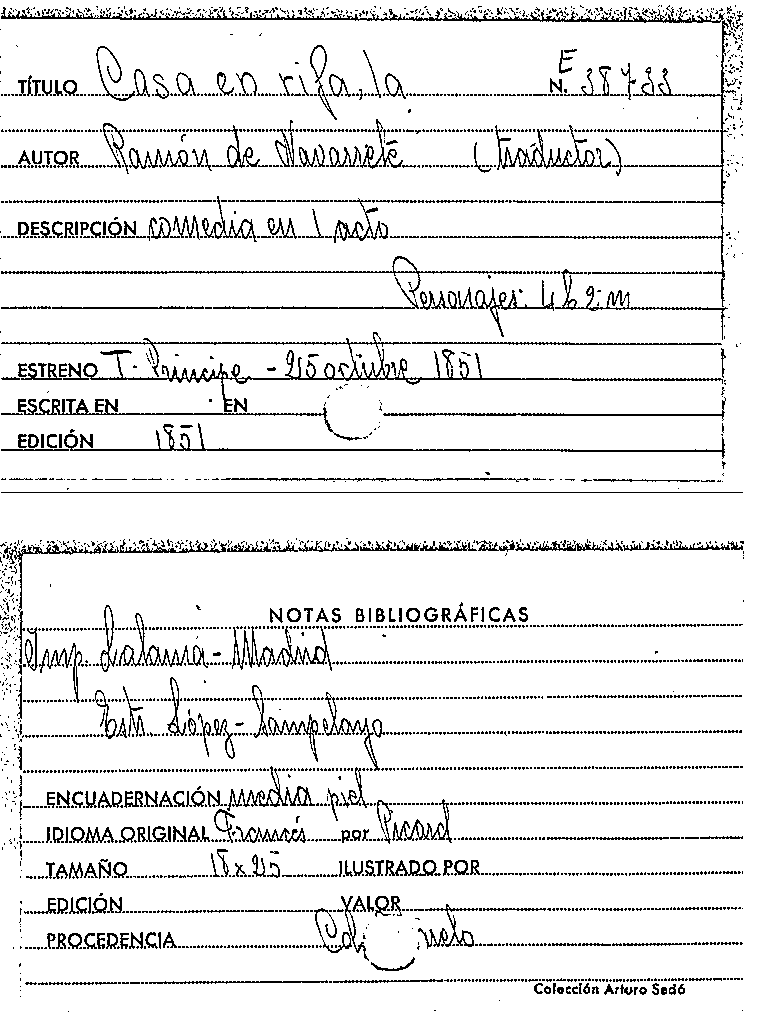 TÍTULO Casa en rifa, la E
N. 38733
AUTOR Ramón de Navarrete (traductor)
DESCRIPCIÓN comedia en 1 acto
Personajes: 4 h 2 m
ESTRENO T. Principe - 25 octubre 1851
ESCRITA EN EN
EDICIÓN 1851
NOTAS BIBLIOGRÁFICAS
Imp. Lalama - Madrid
Estr. López - Sampelayo
ENCUADERNACIÓN media piel
IDIOMA ORIGINAL Francés por Picard
TAMAÑO 18 x 25 ILUSTRADO POR
EDICIÓN VALOR
PROCEDENCIA
Colección Arturo Sedó